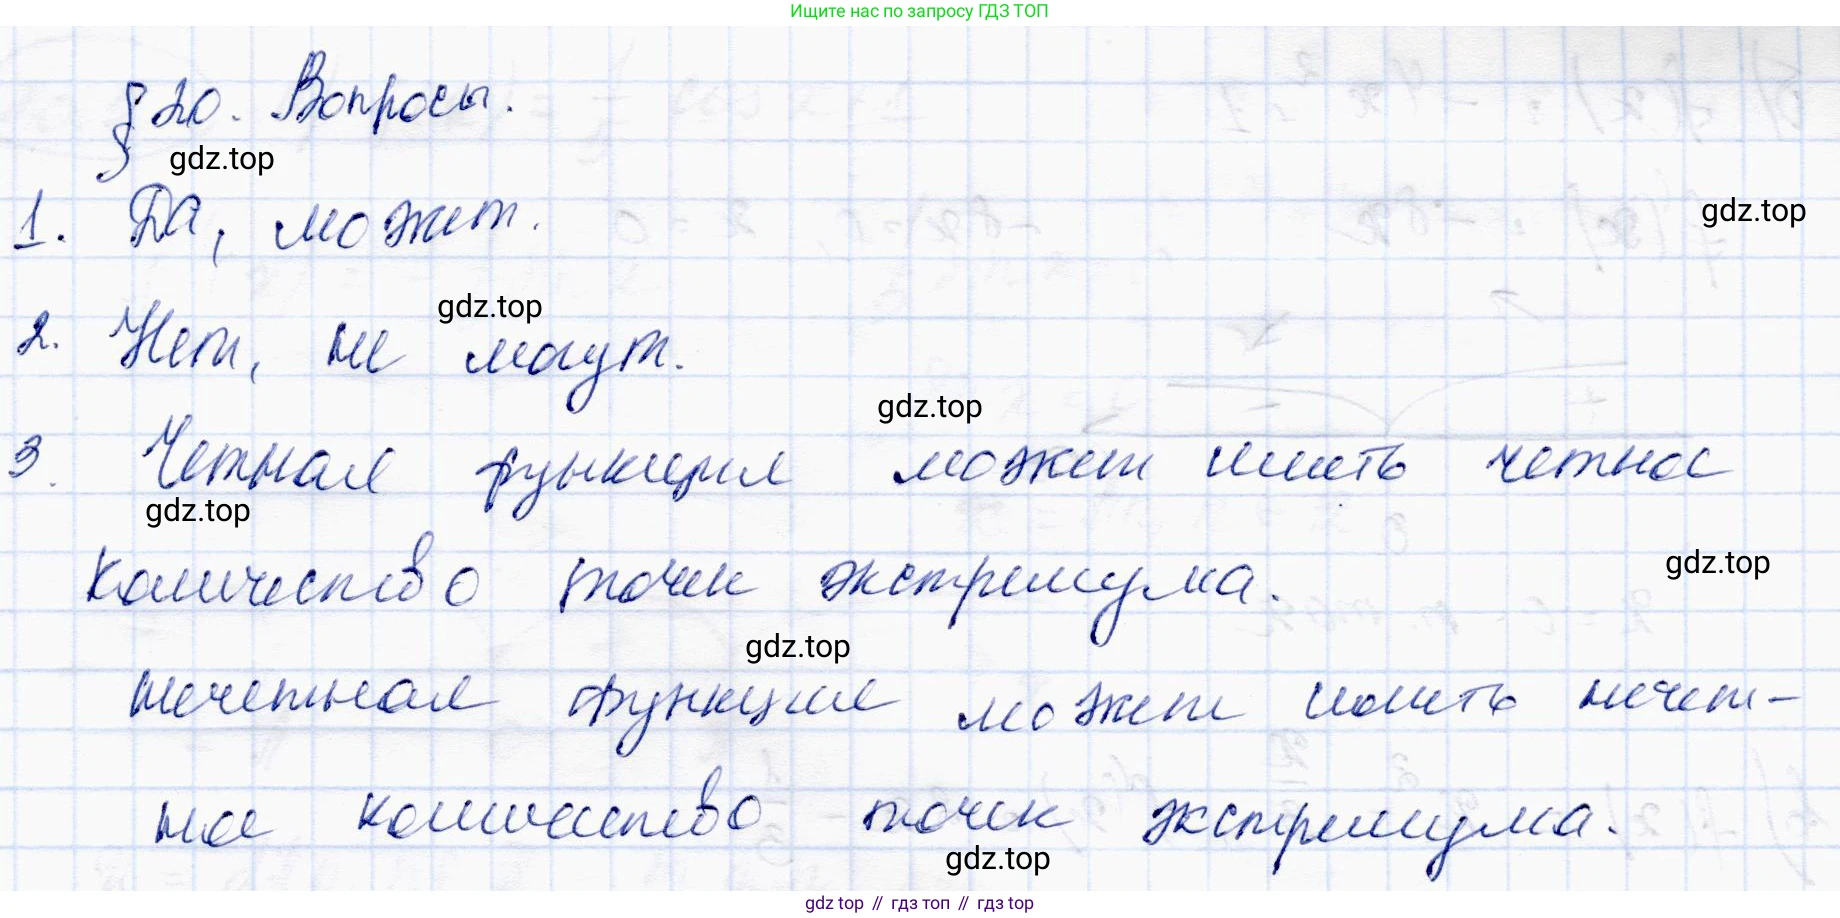 Ищите нас по запросу ГДЗ ТОП
§ 20. Вопросы.
gdz.top
1. Да, может.
gdz.top
gdz.top
2. Нет, не могут.
gdz.top
3. Четная функция может иметь четное
gdz.top
количество точек экстремума.
gdz.top
gdz.top
нечетная функция может иметь нечет-
ное количество точек экстремума.
gdz.top
gdz top // гдз топ // gdz top